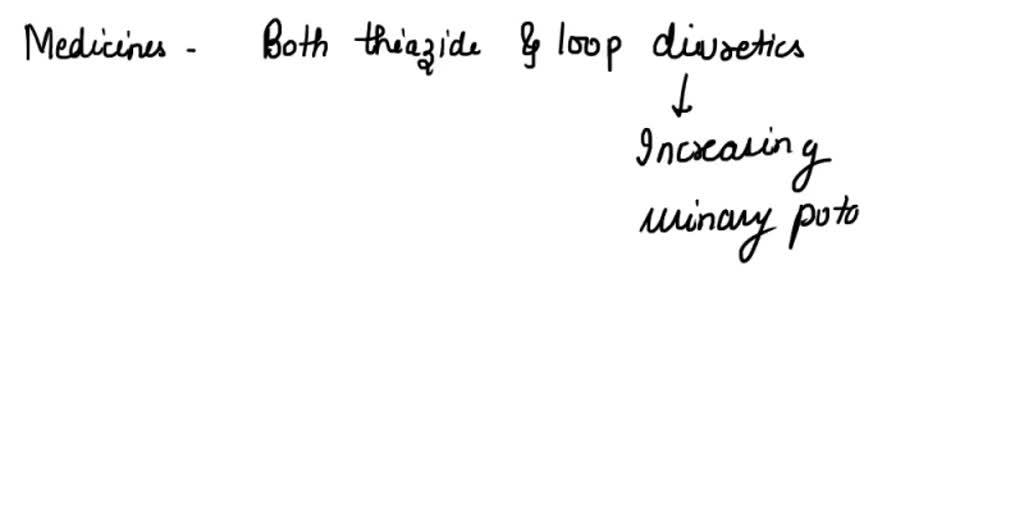 Medicines - Both thiazide & loop diuretics
↓
Increasing
urinary pota